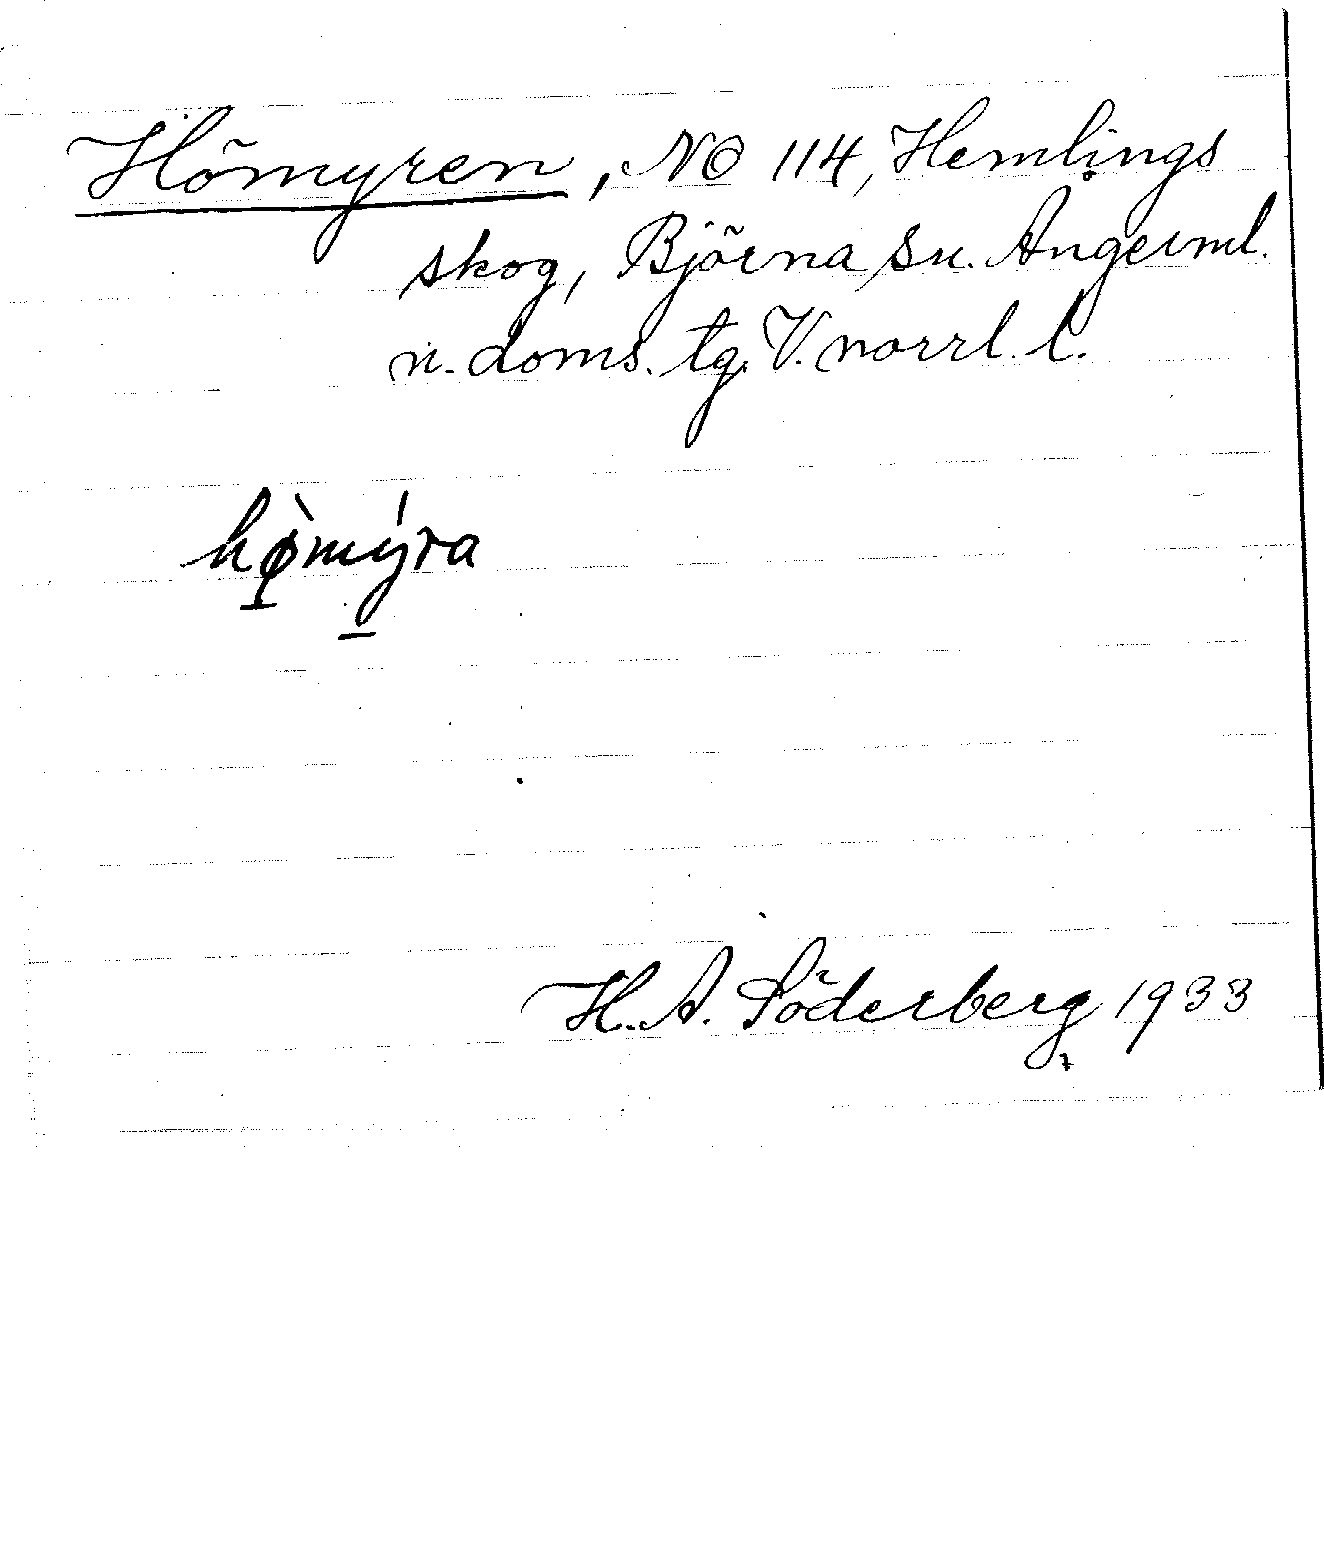 Hömyren, NO 114, Hemlings
skog, Björna sn. Ångerml.
n. doms. tg. V. norrl. l.
hø̀mýra
H. A. Söderberg 1933